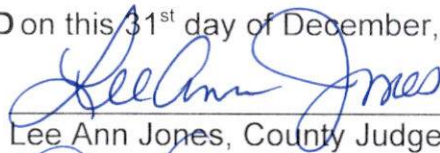 D on this 31st day of December,
Lee Ann Jones
Lee Ann Jones, County Judge